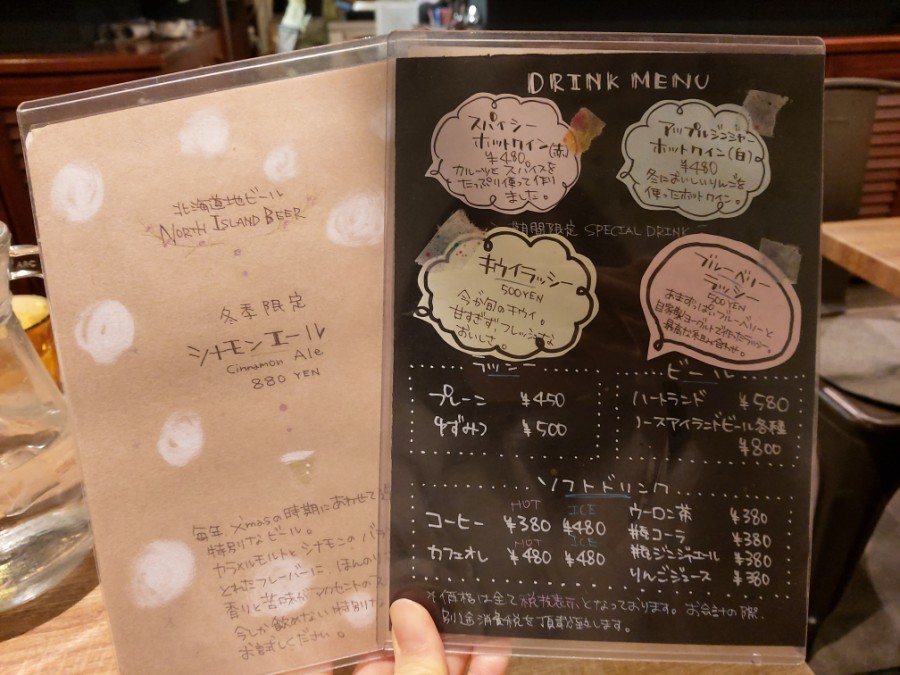 北海道地ビール
NORTH ISLAND BEER
冬季限定
シナモンエール
Cinnamon Ale
880 YEN
毎年 X'masの時期にあわせて
特別なビール。
カラメルモルトとシナモンの バラ
とれたフレーバーに、ほんのり
香りと苦味がアクセントの
今しか飲めない特別な
お試しください。
DRINK MENU
スパイシー
ホットワイン(赤)
¥480。
フルーツとスパイスを
たっぷり使って作り
ました。
アップルジンジャー
ホットワイン(白)
¥480
冬においしいりんごを
使ったホットワイン。
期間限定 SPECIAL DRINK
キウイラッシー
500YEN
今が旬のキウイ。
甘すぎず、フレッシュな
おいしさ。
ブルーベリー
ラッシー
500YEN
あまずっぱいブルーベリーと
自家製ヨーグルトで作ったラッシー。
ラッシー
プレーン ¥450
ゆずみつ ¥500
ビール
ハートランド ¥580
ノースアイランドビール各種
¥800
ソフトドリンク
HOT ICE
コーヒー ¥380 ¥480
HOT ICE
カフェオレ ¥480 ¥480
ウーロン茶 ¥380
瓶コーラ ¥380
瓶ジンジャエール ¥380
りんごジュース ¥380
※価格は全て税抜表示となっております。お会計の際、
別途消費税を頂戴致します。